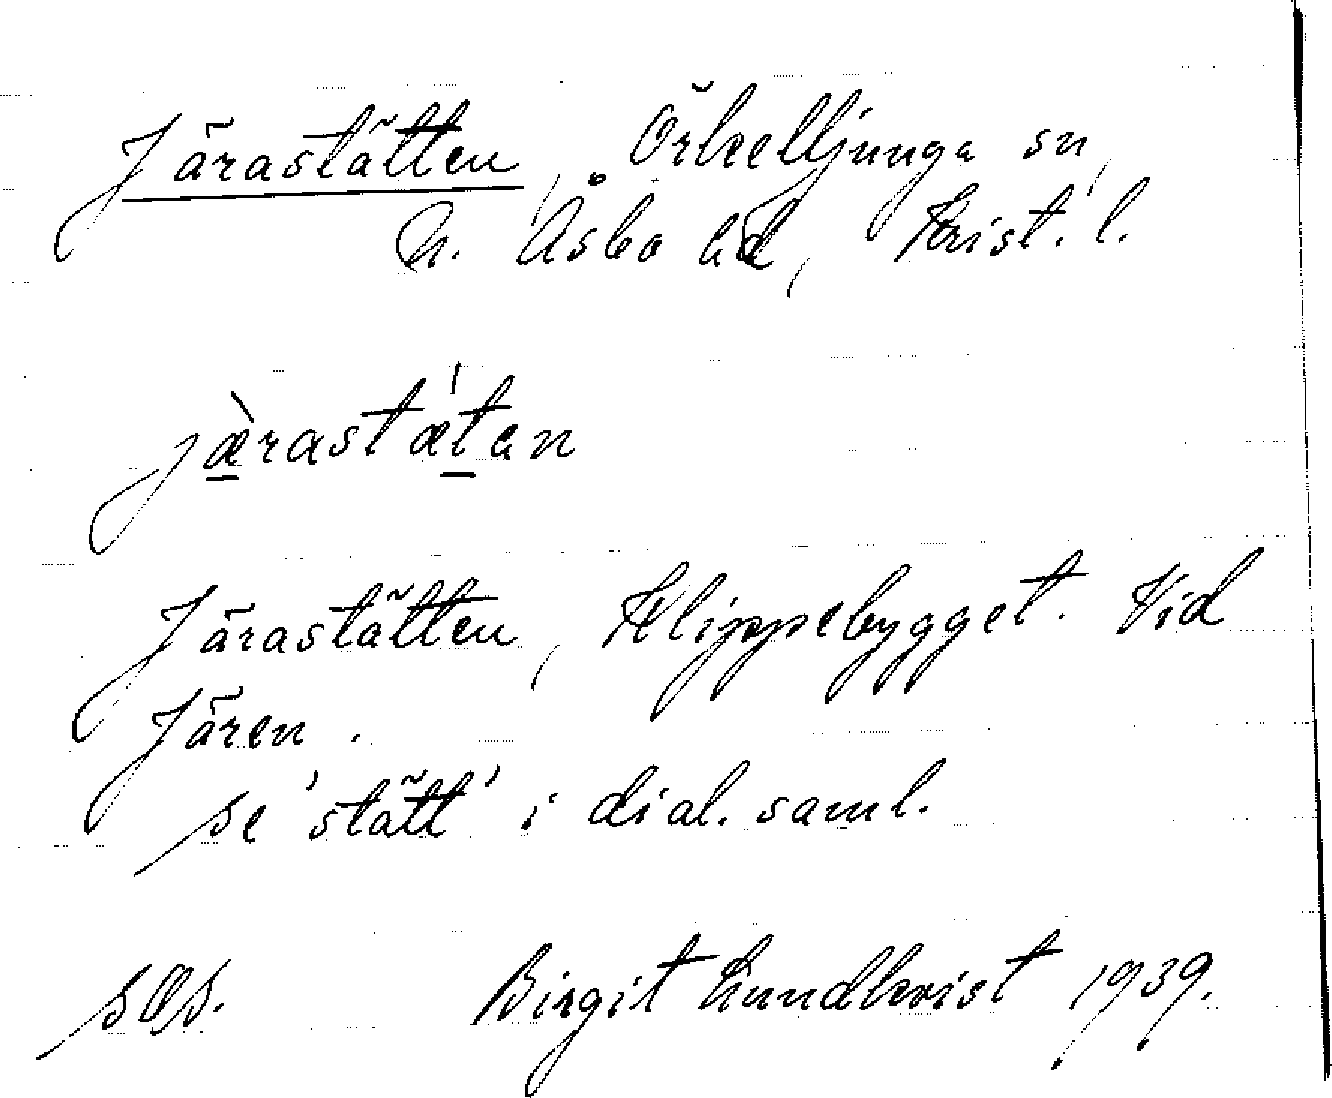 Järastätten, Örkelljunga sn,
N. Åsbo hd, Krist. l.
jæ̀rastǽtan
Järastätten, Klippebygget. Vid
Jären.
se 'stätt' i dial. saml.
Birgit Lundkvist 1939.